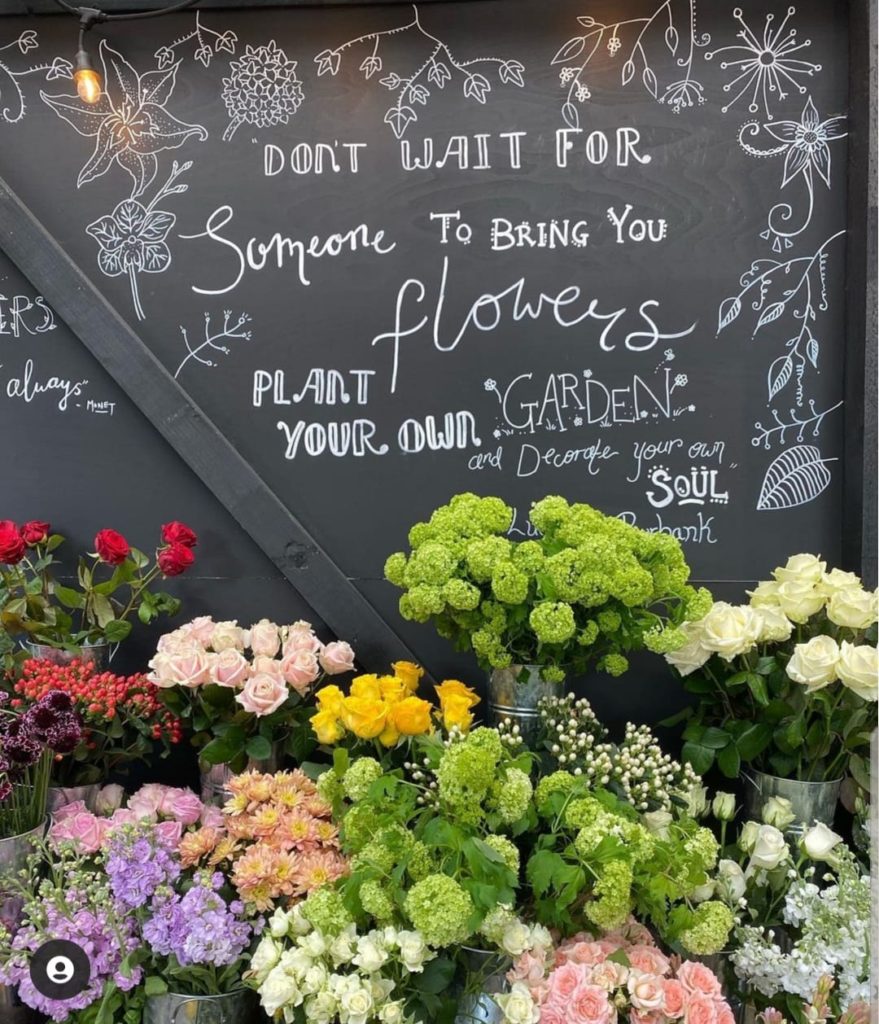 "DON'T WAIT FOR
Someone TO BRING YOU
flowers
PLANT
YOUR OWN GARDEN
and Decorate your own
SOUL"
Burbank
ERS
always"
- MONET